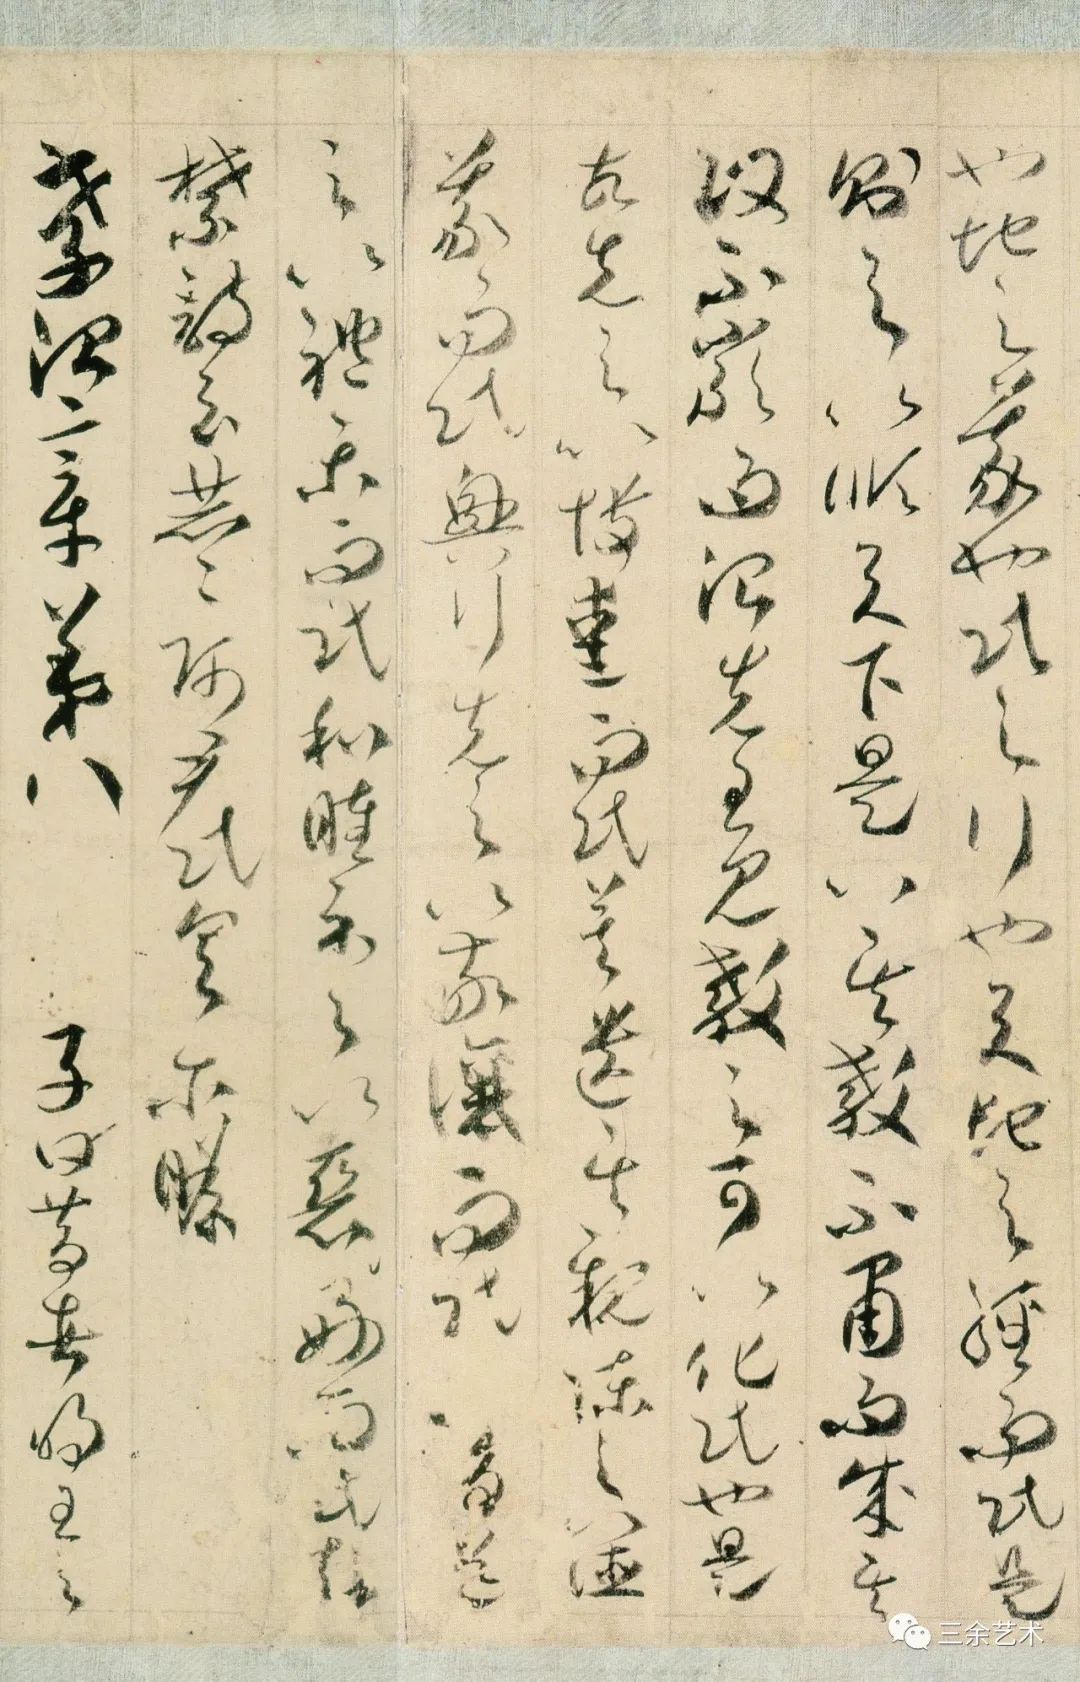 也地之義也民之行也天地之經而民是
則之以順天下是以其教不肅而成其
政不嚴而治先王見教之可以化民也是
故先之以博愛而民莫遺其親陳之以德
義而民興行先之以敬讓而民不爭導
之以禮樂而民和睦示之以惡好而民知
禁詩云赫〻師尹民具爾瞻
孝治章第八 子曰昔者明王之
三余艺术